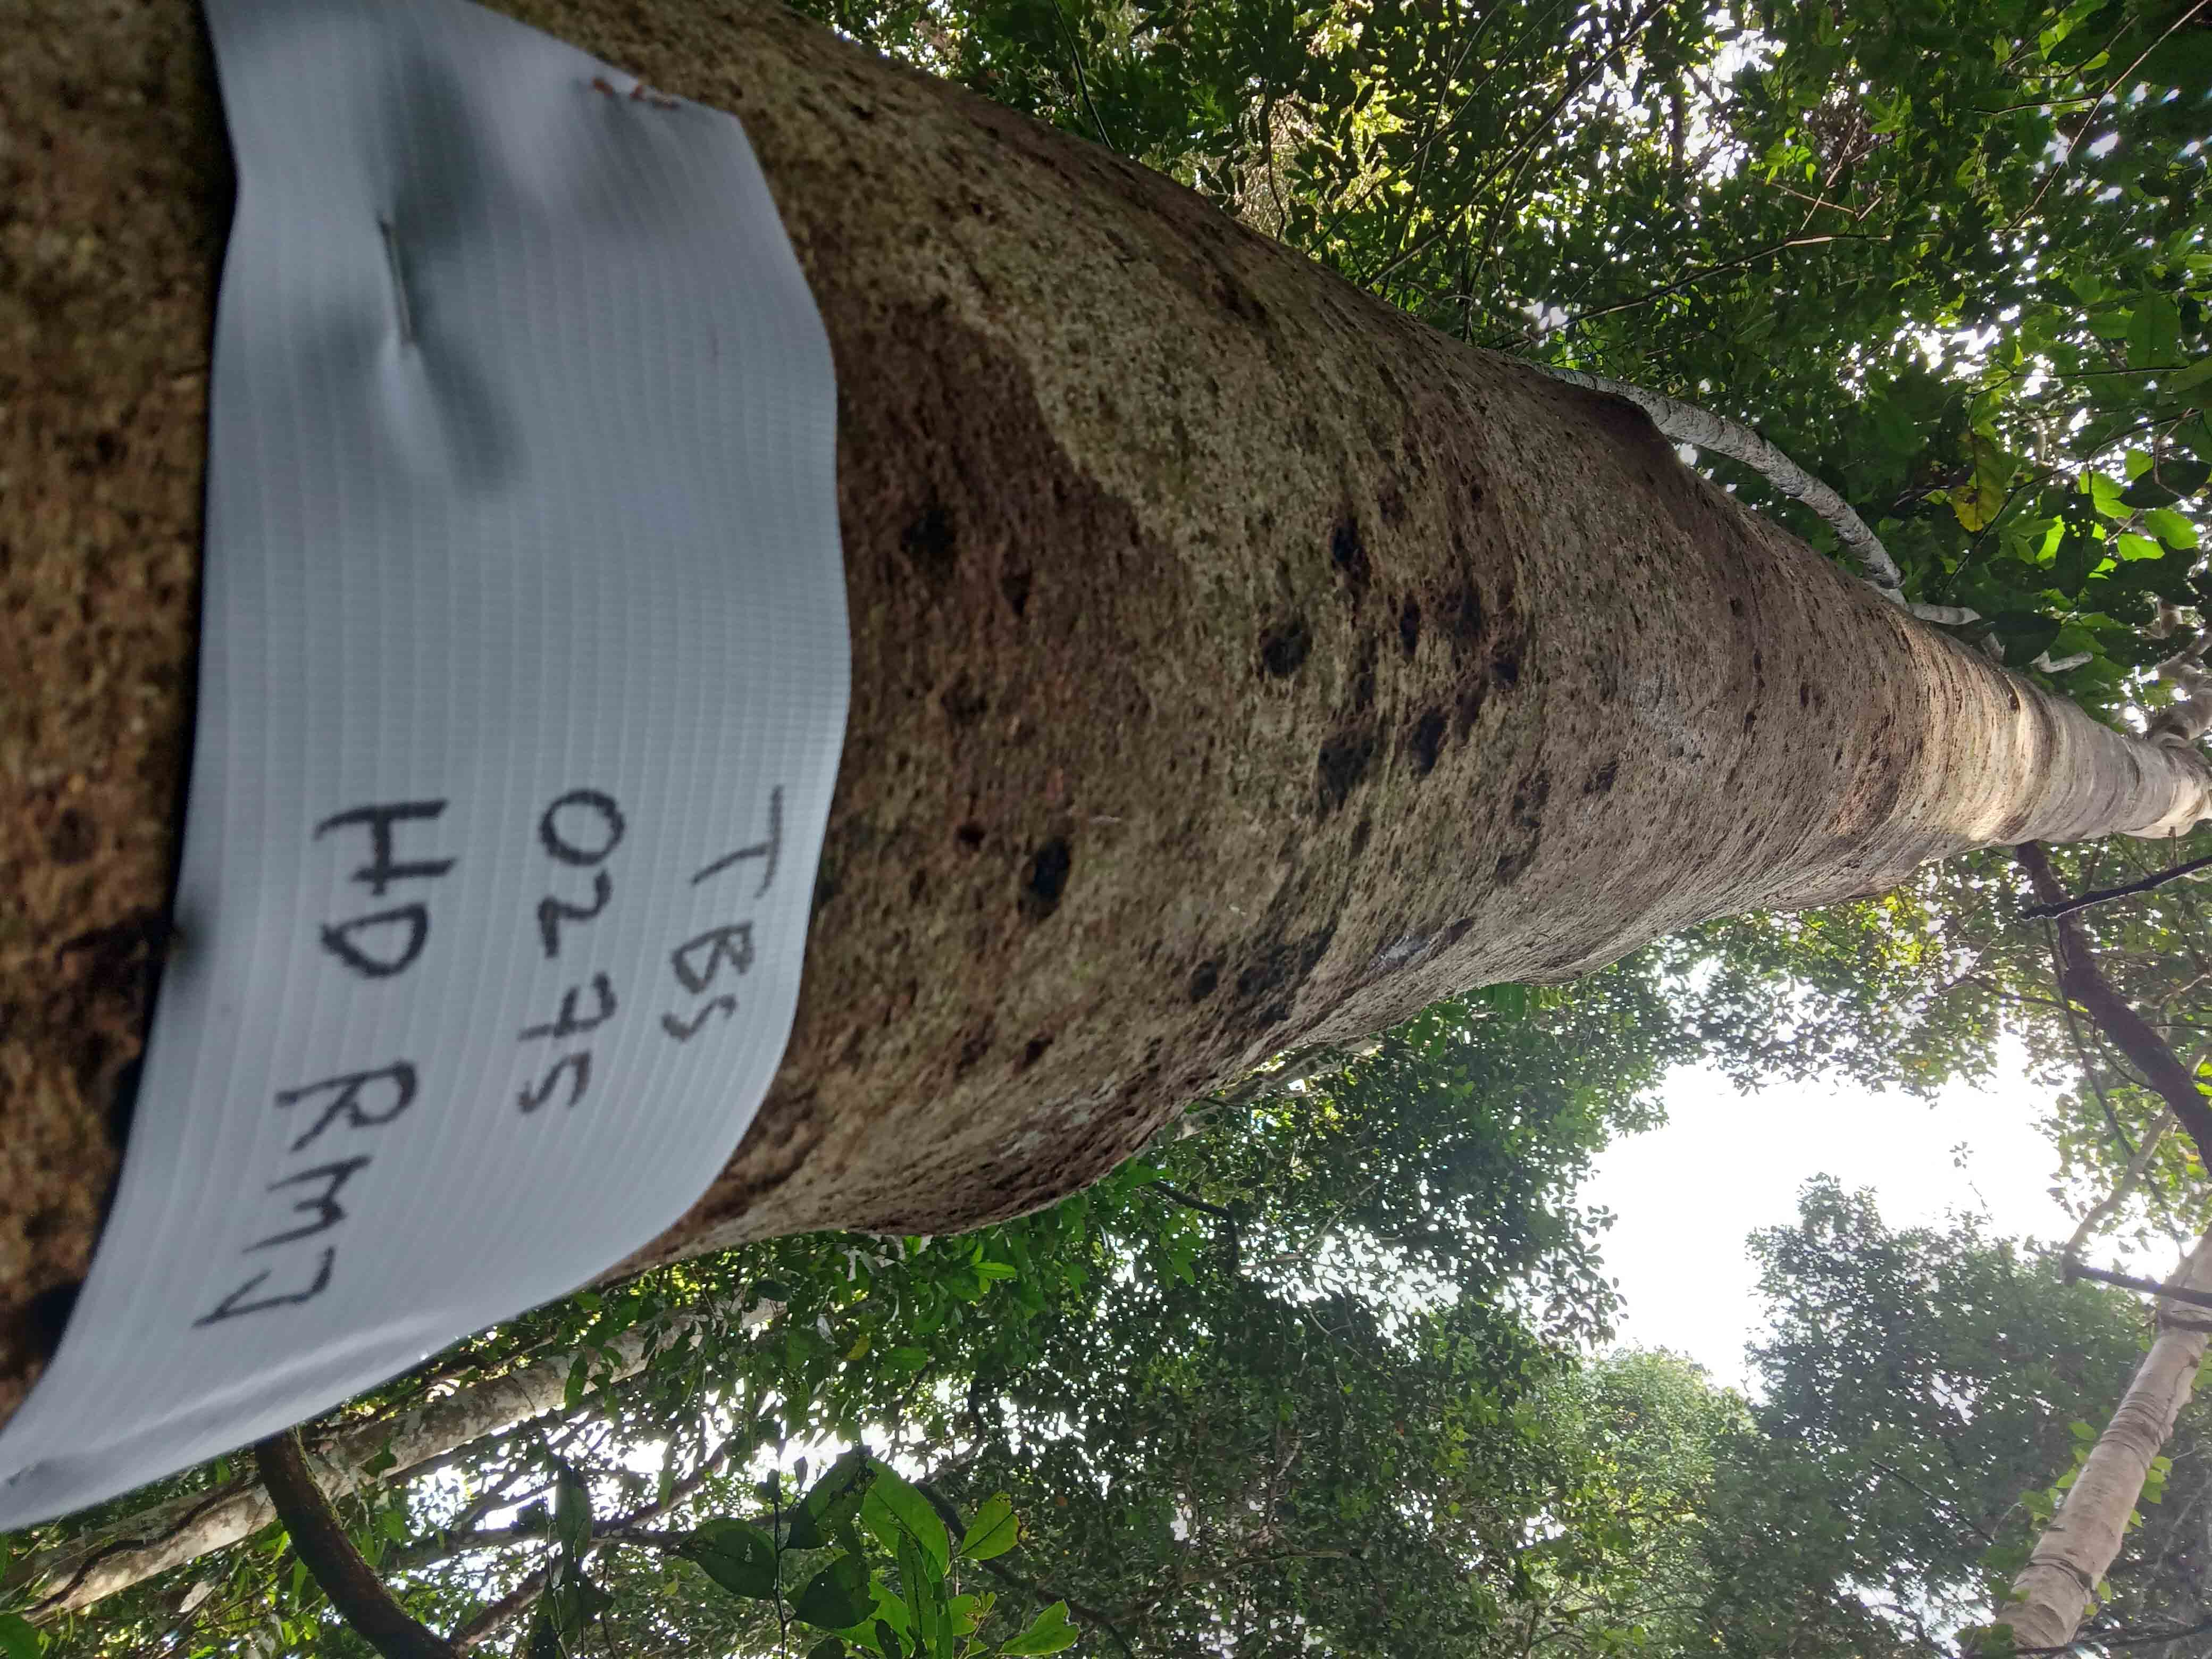 TBS
0275
HD RMJ